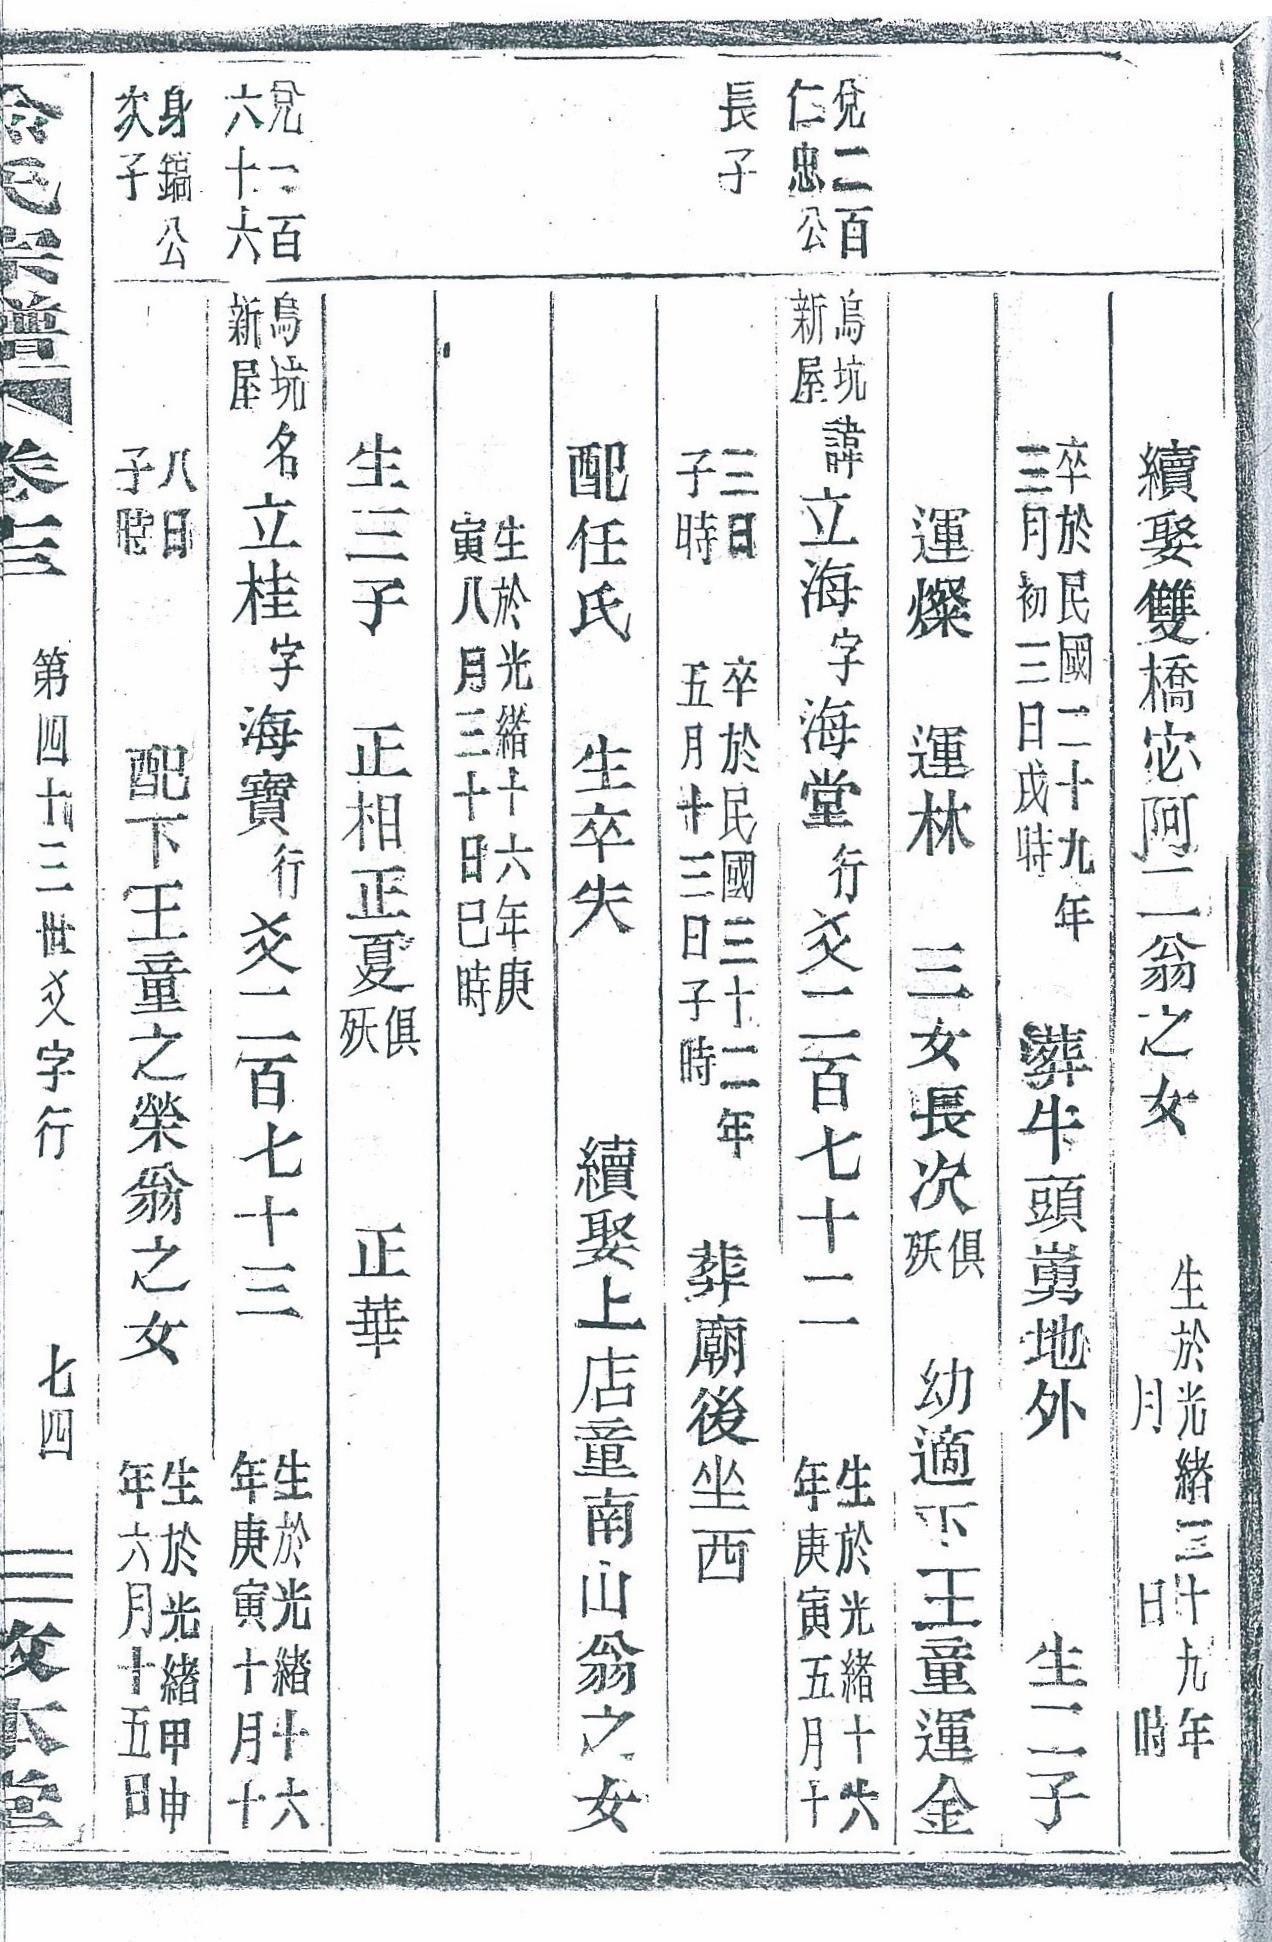 續娶雙橋宓阿二翁之女 生於光緒三十九年 月 日 時
卒於民國二十九年三月初三日戌時 葬牛頭嵩地外 生二子
運燦 運林 三女長次俱殀 幼適下王童運金
兌二百仁忠公長子
烏坑新屋 諱立海字海堂行爻二百七十二 生於光緒十六年庚寅五月十
三日子時 卒於民國三十二年五月十三日子時 葬廟後坐西
配任氏 生卒失 續娶上店童南山翁之女
生於光緒十六年庚寅八月三十日巳時
生三子 正相正夏俱殀 正華
兌一百六十六身鎬公次子
烏坑新屋 名立桂字海寶行爻二百七十三 生於光緒十六年庚寅十月十
八日子時 配下王童之榮翁之女 生於光緒甲申年六月十五日
氏宗譜 卷三 第四十三世爻字行 七四 敦本堂